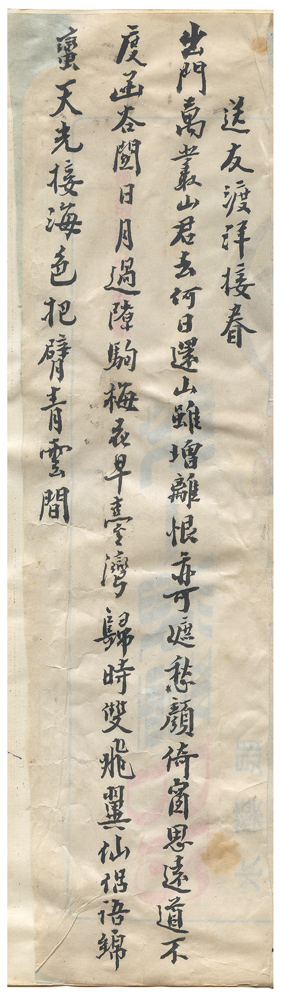 送友渡洋接眷
出門萬叢山君去何日還山雖增離恨亦可遮愁顏倚窗思遠道不
度函谷關日月過隙駒梅花早臺灣歸時雙飛翼仙侶語綿
蠻天光接海色把臂青雲間